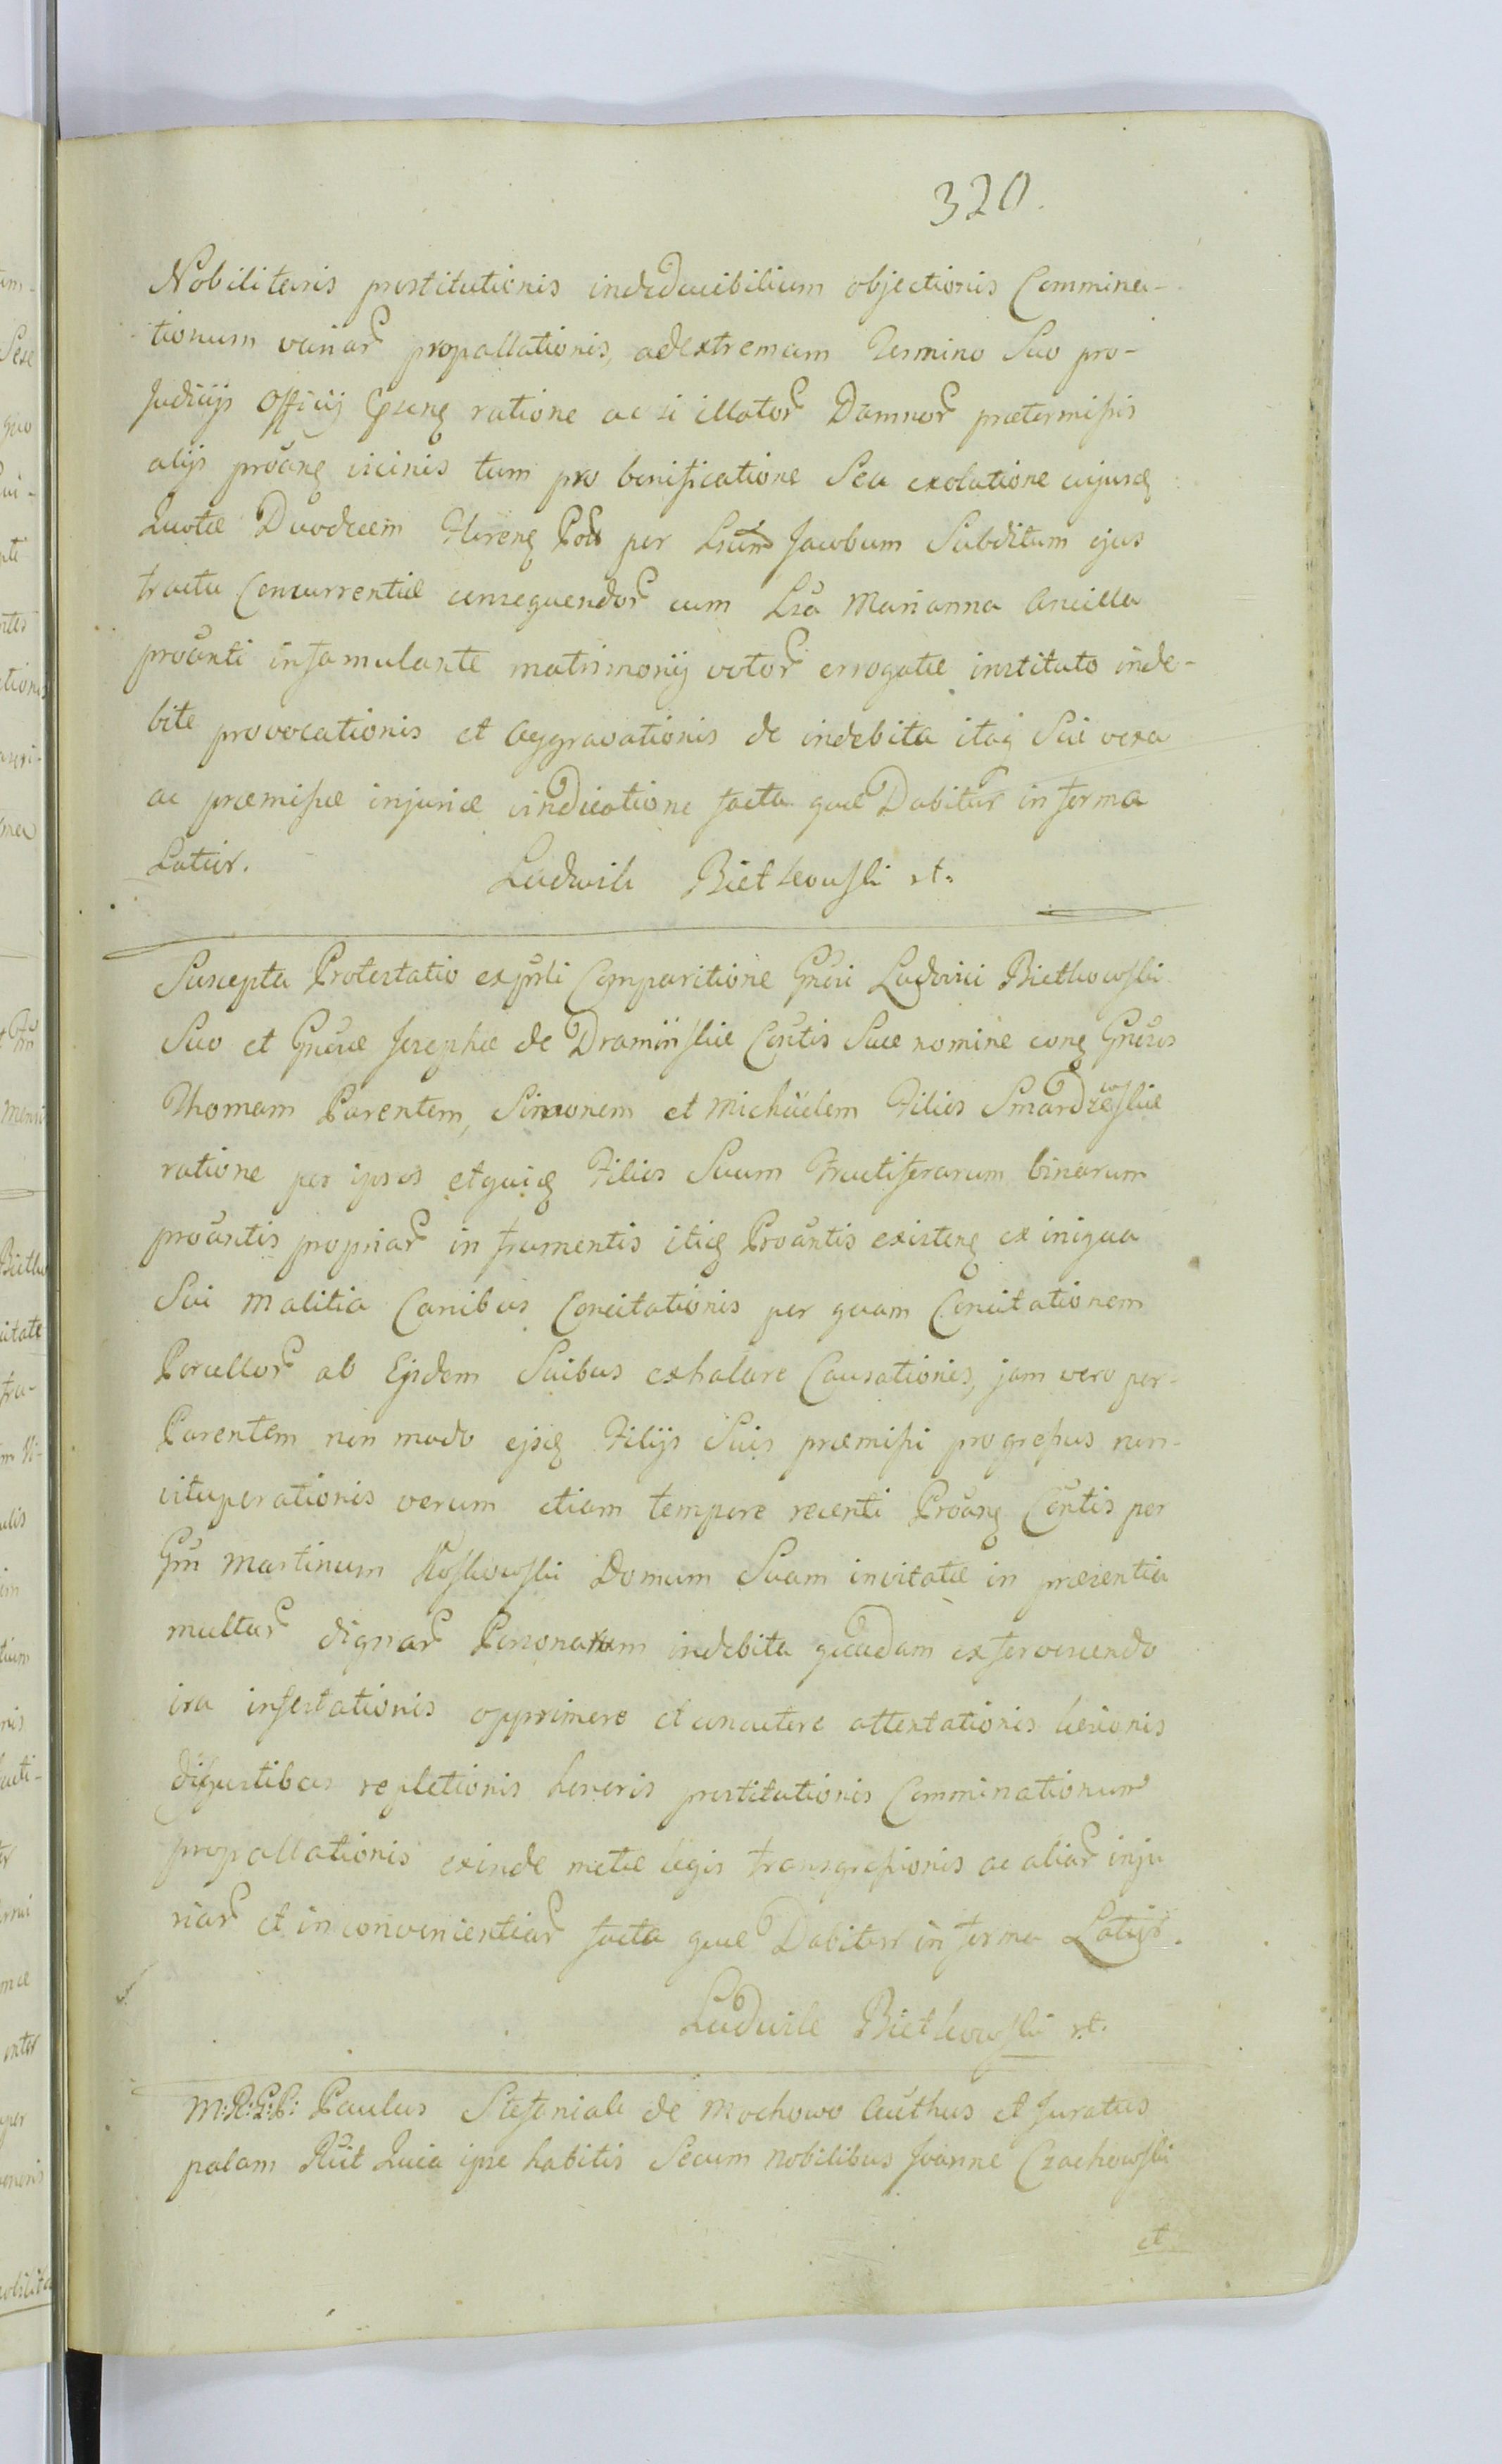 320.
Nobilitaris prostitutionis indeducibilium objectionis Commina-
tionum variar propallationis, adextremum Termino Suo pro-
Judicijs Officij ratione ac si illator Damnor prætermissis
alijs vicinis tum pro bonificatione Seu exolutione cujusq
Quotæ Duodecim Floren Pol per Jacobum Subditum ejus
tractu Concurrentiæ consequendor cum Marianna Ancilla
proanti infamulante matrimonij votor errogatæ instituto inde-
bite provocationis et Aggravationis de indebita itaq Sui vexa
ac præmissæ injuriæ vindicatione facta quæ Dabitur in forma
Latior. Ludwik Bietkowski
Suscepta Protestatio ex psnli Comparitione Gnosi Ludovici Bietkowski
Suo et Gnosæ Josephæ de Dramińskie Contis Suæ nomine conq Gnosos
Thomam Parentem, Simonem et Michäelem Filios Smardzewskie
ratione per ipsos etquidq Filios Suum Fructiferarum binarum
proantis propriar in frumentis itidq Proantis existenq ex iniqua
Sui Malitia Canibus Concitationis per quam Concitationem
Porcellor ab Ejsdem Suibus exhalare Causationis, jam vero per-
Parentem non modo ejsq Filijs Suis præmissi progressus non-
vituperationis verum etiam tempore recenti Proanq Contis per
Gm Martinum Domum Suam invitatæ in præsentia
multar dignar Personarum indebita quadam exfervescendo
ira infestationis opprimere et concutere attentationis læsionis
disgustibus repletionis honoris prostitutionis Comminationum
propallationis exinde metæ legis transgressionis ac aliar inju
riar et inconvenientiar facta quæ Dabitur in forma Latiori.
Ludwik Bietkowski
M:R:G:P: Paulus Stefaniak de Mochowo Authus et Juratus
palam Rlit Quia ipse habitis Secum Nobilibus Joanne Czachowski
et